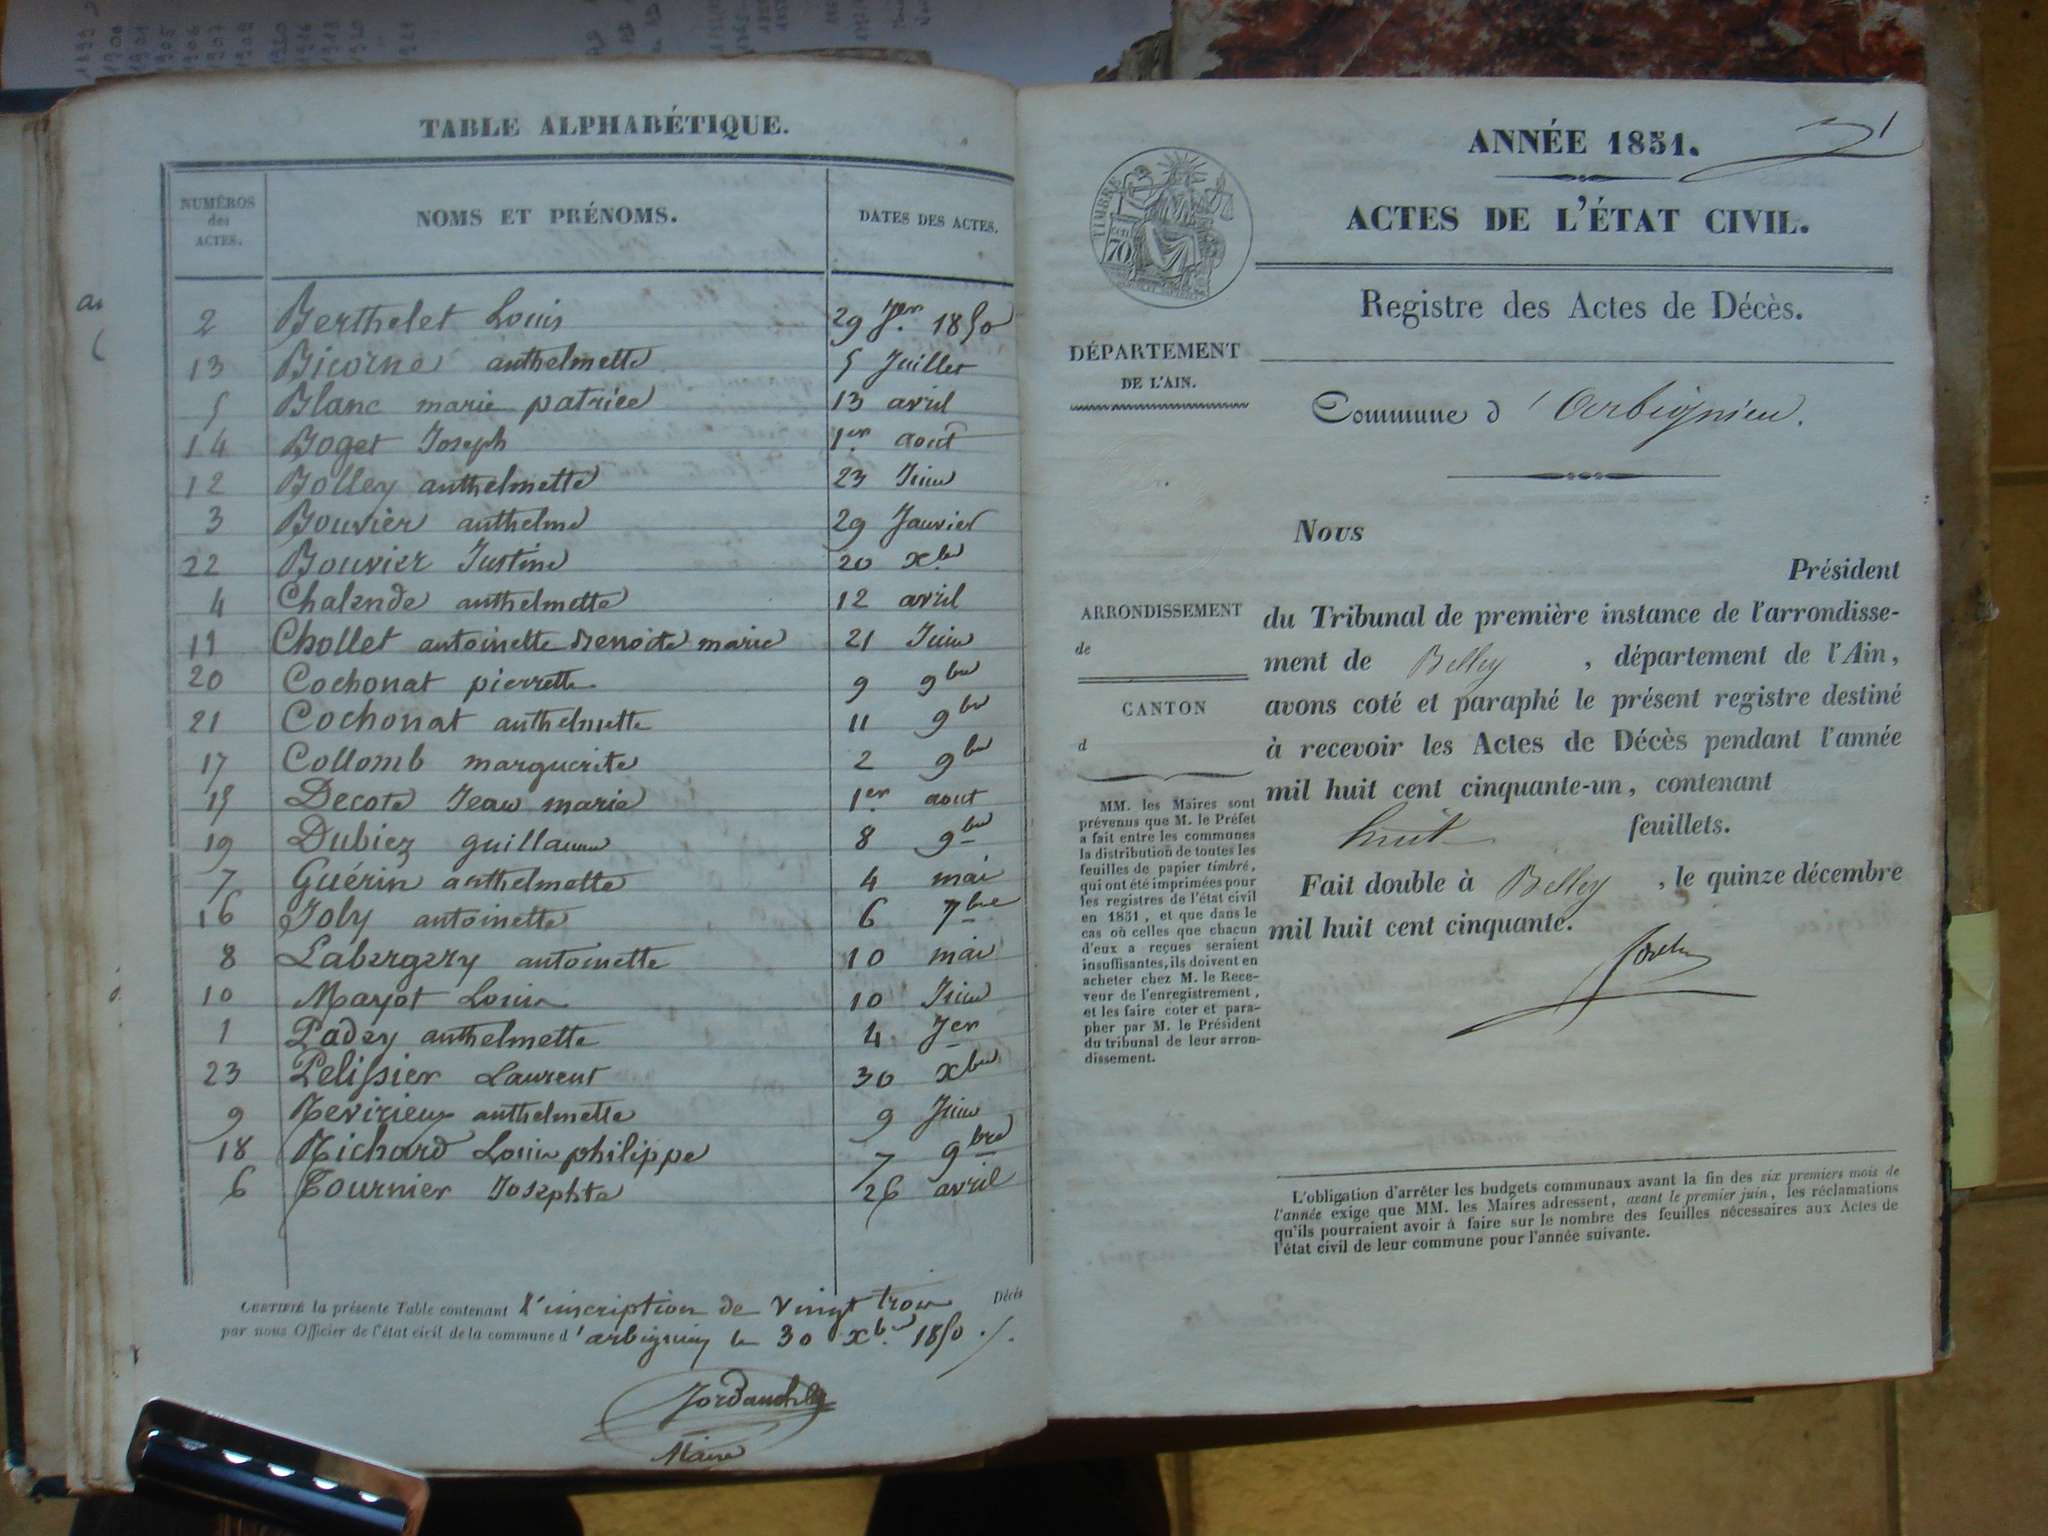 TABLE ALPHABÉTIQUE.
NUMÉROS des ACTES. NOMS ET PRÉNOMS. DATES DES ACTES.
2 Berthelet Louis 29 Jer. 1850
13 Bicorne anthelmette 5 Juillet
5 Blanc marie patrice 13 avril
14 Boget Joseph 1er aout
12 Bolley anthelmette 23 Juin
3 Bouvier anthelme 29 Janvier
22 Bouvier Justine 20 xbre
4 Chalende anthelmette 12 avril
11 Chollet antoinette Benoite marie 21 Juin
20 Cochonat pierrette 9 9bre
21 Cochonat anthelmette 11 9bre
17 Collomb marguerite 2 9bre
15 Decote Jean marie 1er aout
19 Dubiez guillaume 8 9bre
7 Guérin anthelmette 4 mai
16 Joly antoinette 6 7bre
8 Labergery antoinette 10 mai
10 Mayot Louis 10 Juin
1 Padey anthelmette 4 Jer
23 Pelissier Laurent 30 xbre
9 Revirieux anthelmette 9 Juin
18 Richard Louis philippe 7 9bre
6 Tournier Josephte 26 avril
CERTIFIÉ la présente Table contenant l'inscription de vingt trois Décès
par nous Officier de l'état civil de la commune d'arbignieu le 30 xbre 1850
Maire
1
ANNÉE 1851.
ACTES DE L'ÉTAT CIVIL.
TIMBRE
70
Registre des Actes de Décès.
DÉPARTEMENT
DE L'AIN.
Commune d'Arbignieu.
ARRONDISSEMENT
de
CANTON
d
MM. les Maires sont
prévenus que M. le Préfet
a fait entre les communes
la distribution de toutes les
feuilles de papier timbré,
qui ont été imprimées pour
les registres de l'état civil
en 1851, et que dans le
cas où celles que chacun
d'eux a reçues seraient
insuffisantes, ils doivent en
acheter chez M. le Rece-
veur de l'enregistrement,
et les faire coter et para-
pher par M. le Président
du tribunal de leur arron-
dissement.
Nous
Président
du Tribunal de première instance de l'arrondisse-
ment de Belley, département de l'Ain,
avons coté et paraphé le présent registre destiné
à recevoir les Actes de Décès pendant l'année
mil huit cent cinquante-un, contenant
huit feuillets.
Fait double à Belley, le quinze décembre
mil huit cent cinquante.
L'obligation d'arrêter les budgets communaux avant la fin des six premiers mois de
l'année exige que MM. les Maires adressent, avant le premier juin, les réclamations
qu'ils pourraient avoir à faire sur le nombre des feuilles nécessaires aux Actes de
l'état civil de leur commune pour l'année suivante.